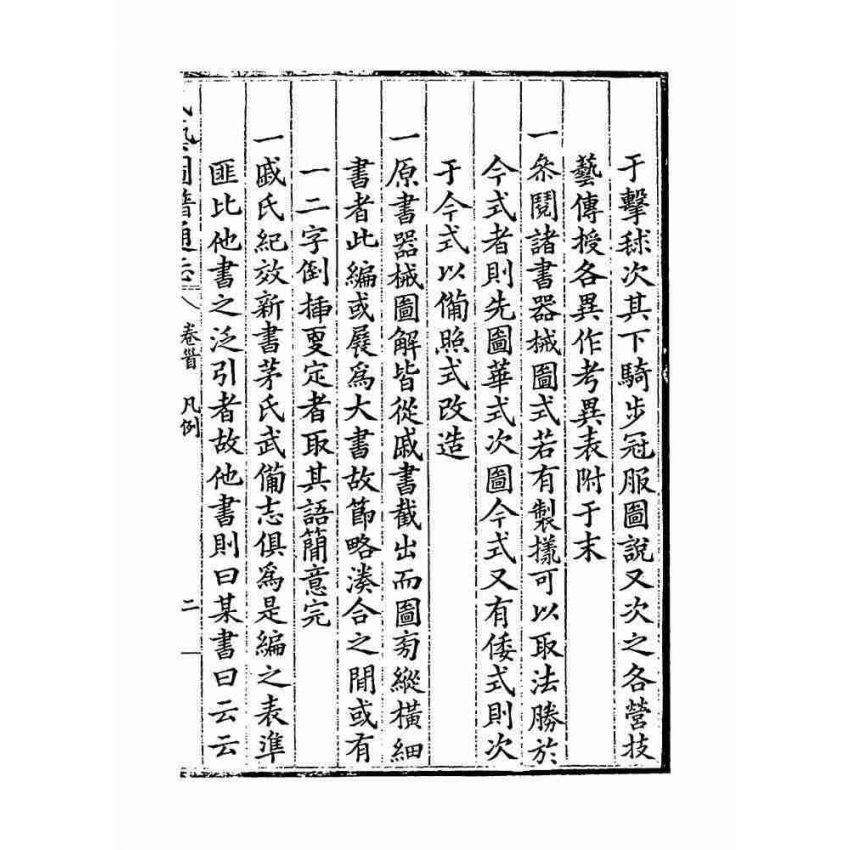 于擊毬次其下騎步冠服圖說又次之各營技
藝傳授各異作考異表附于末
一叅閱諸書器械圖式若有製㨾可以取法勝於
今式者則先圖華式次圖今式又有倭式則次
于今式以備照式改造
一原書器械圖解皆從戚書截出而圖旁縱橫細
書者此編或展爲大書故節略湊合之閒或有
一二字倒揷㪅定者取其語簡意完
一戚氏紀效新書茅氏武備志俱爲是編之表準
匪比他書之泛引者故他書則曰某書曰云云
藝圖譜通志 卷首 凡例 二